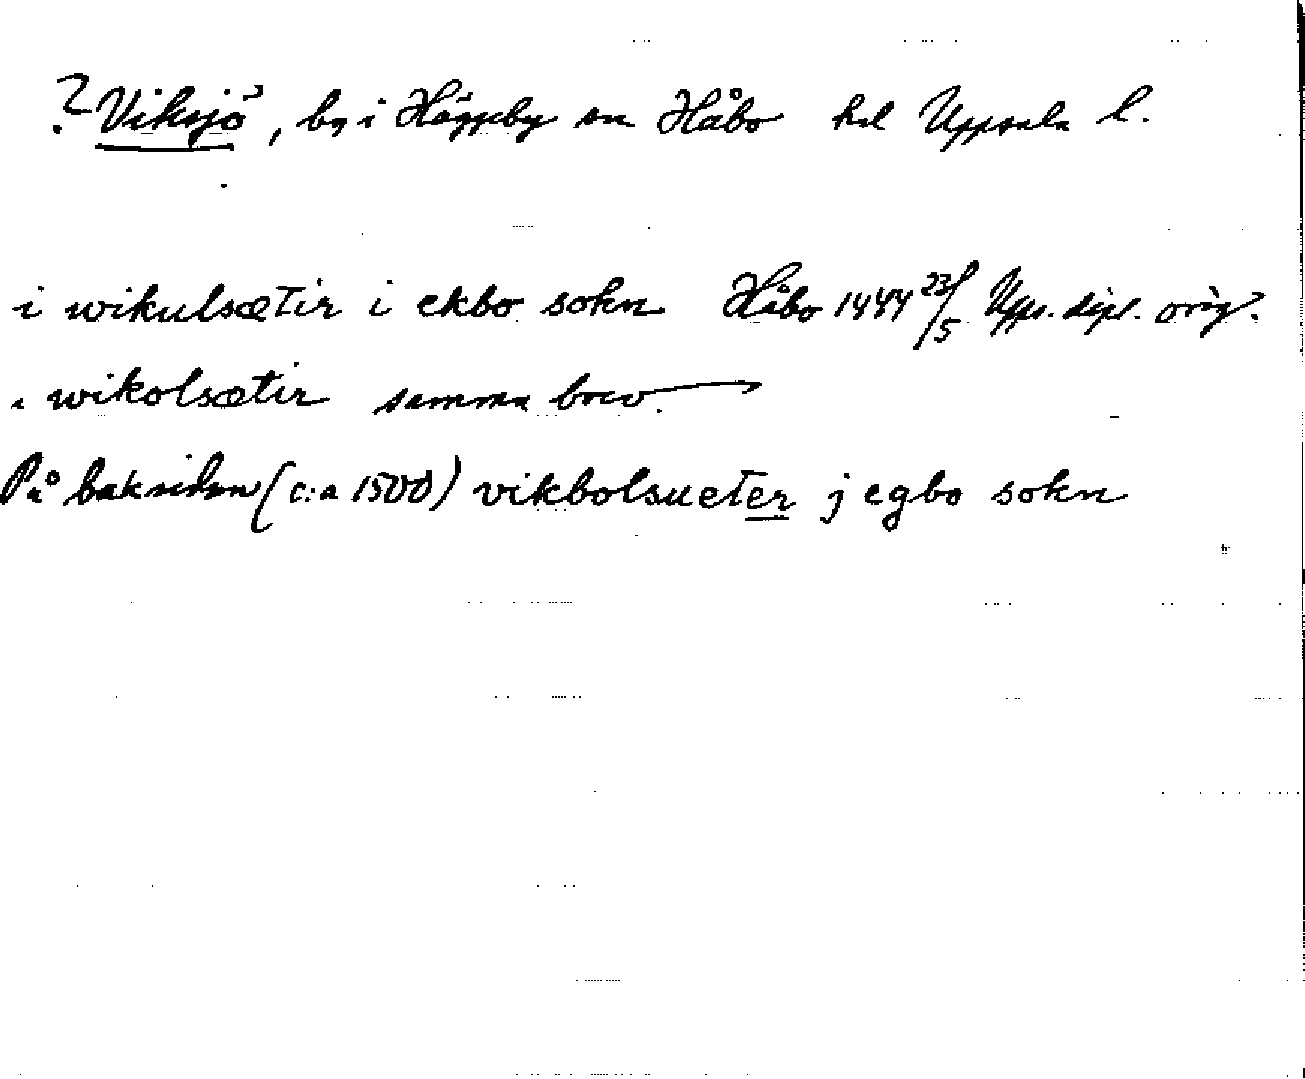 ? Viksjö, by i Häggeby sn Håbo hd Uppsala l.
i wikulsætir i ekbo sokn Håbo 1444 23/5 Upps. dipl. orig.
i wikolsætir samma brev.
På baksidan (c:a 1500) vikbolsueter j egbo sokn